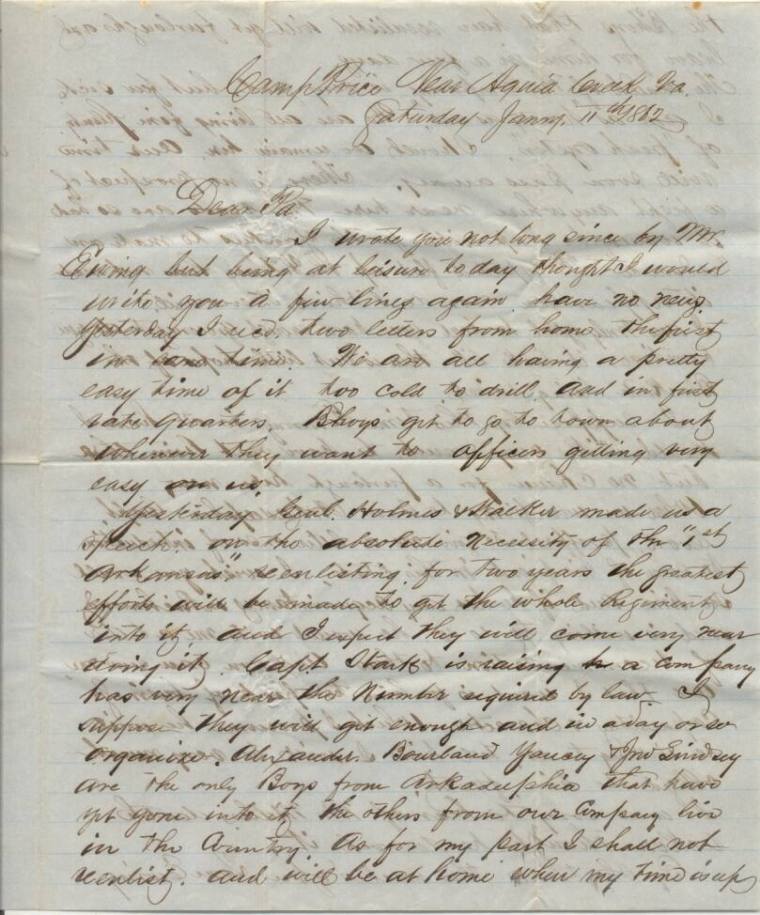 Camp Price Near Aquia Creek Va.
Saturday Janny. 11th 1862
Dear Pa
I wrote you not long since by Mr.
Ewing but being at leisure today thought I would
write you a few lines again. have no news
Yesterday I recd. two letters from home the first
in some time. We are all having a pretty
easy time of it too cold to drill and in first
rate quarters. Bhoys get to go to town about
whenever they want to officers getting very
easy on us.
Yesterday Genl. Holmes & Walker made us a
speech on the absolute necessity of the "1st
Arkansas" reenlisting for two years the greatest
efforts will be made to get the whole Regiment
into it and I expect they will come very near
doing it. Capt. Stark is raising a company
has very near the number required by law I
suppose they will get enough and in a day or so
organize. Alexander Bourland Yancey & Jno Lindsey
are the only Boys from Arkadelphia that have
yet gone into it, the others from our Company live
in the Country. As for my part I shall not
reenlist. and will be at home when my time is up